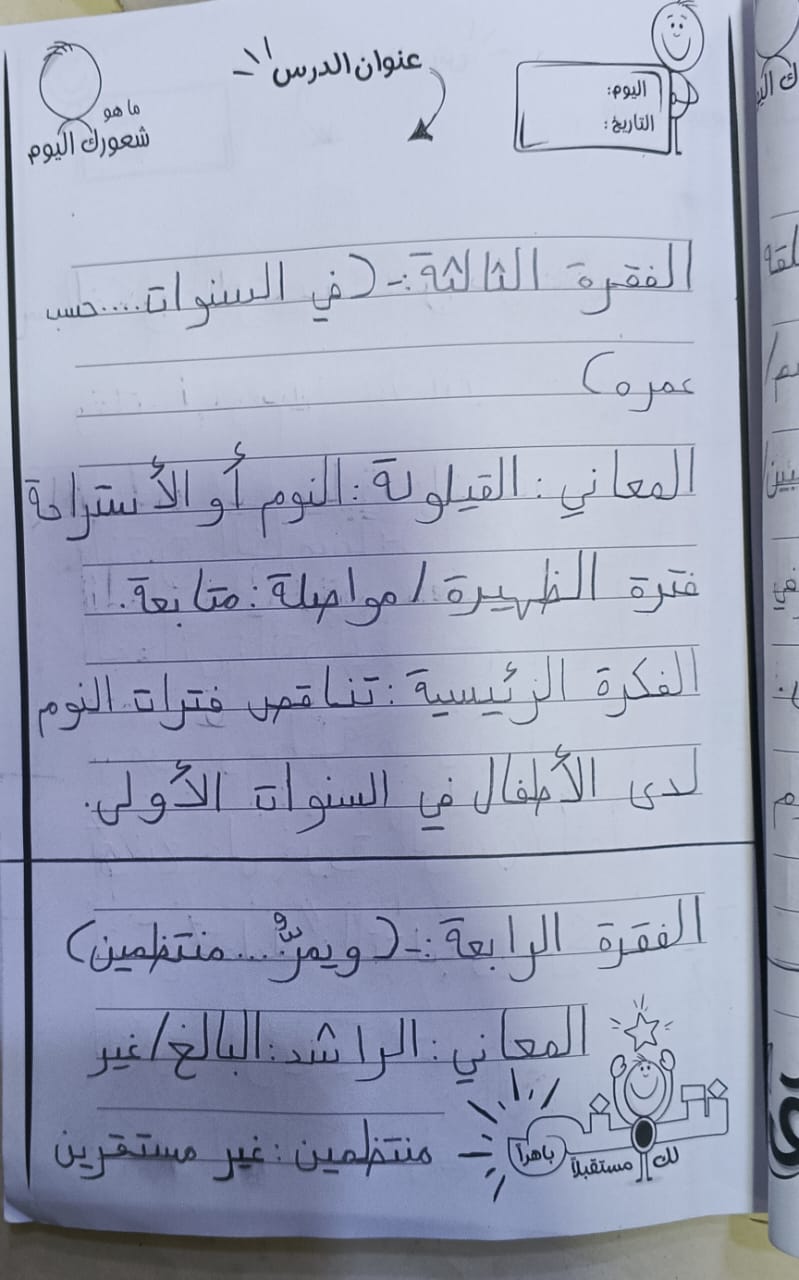 عنوان الدرس
اليوم:
التاريخ:
ما هو
شعورك اليوم
الفقرة الثالثة:- (في السنوات....حسب
عمره)
المعاني: القيلولة: النوم أو الأستراحة
فترة الظهيرة / مواصلة: متابعة.
الفكرة الرئيسية: تناقص فترات النوم
لدى الأطفال في السنوات الأولى.
الفقرة الرابعة:- (ويمرُّ... منتظمين)
المعاني: الراشد: البالغ / غير
منتظمين: غير مستقرين
لك مستقبلاً باهراً